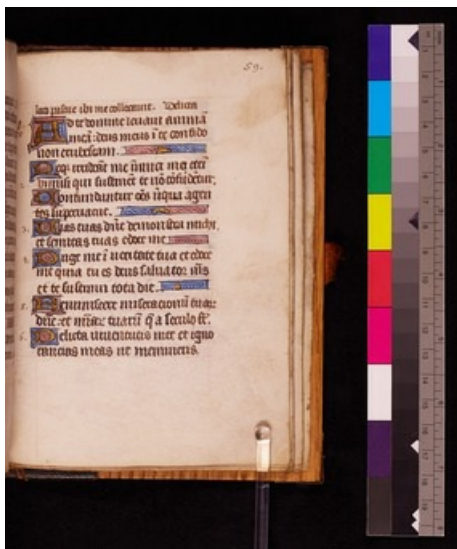 59.
loco pascue ibi me collocauit. Delicta
Ad te domine leuaui animā
meā: deus meus ī te confido
non erubescam.
Neqʒ irrideāt me inimici mei etenī
uniuersi qui sustinēt te nō cōfūdētur.
Confundantur oēs iniqua agen
tes superuacue.
Uias tuas dn̄e demonstra michi,
et semitas tuas edoce me
Dirige me ī ueritate tua et doce
me quia tu es deus saluator m̄s
et te sustinui tota die.
Reminiscere miseracionū tuarū
dn̄e: et mīarū tuarū q̄ a seculo st̄.
Delicta iuuentutis mee et igno
rancias meas ne memineris.